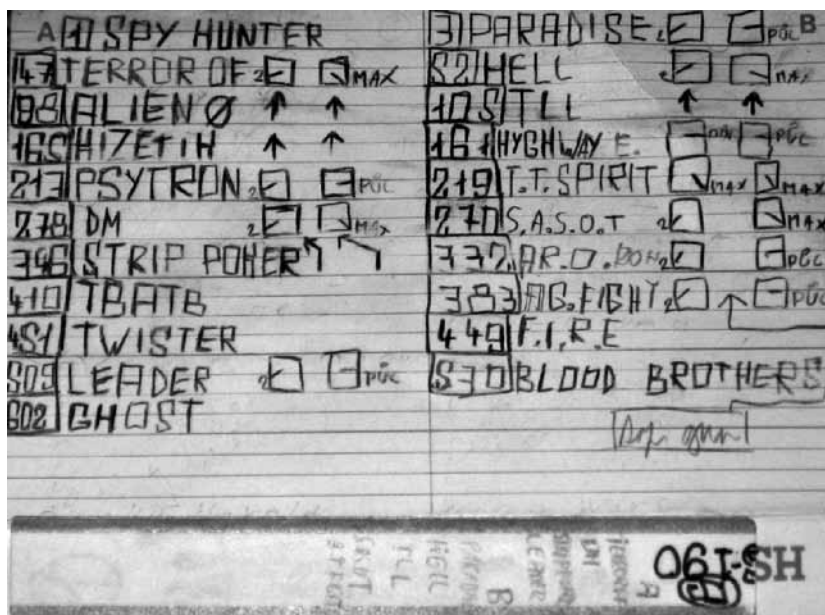 A 1 SPY HUNTER
47 TERROR OF 2 MAX
98 ALIEN Ø ↑ ↑
165 HIZETIH ↑ ↑
213 PSYTRON 2 PŮL
278 DM 2 MAX
346 STRIP POKER
410 TBATB
451 TWISTER
509 LEADER 2 PŮL
602 GHOST
3 PARADISE 2 PŮL B
52 HELL 2 MAX
105 TLL ↑ ↑
161 HYGHWAY E. PŮL
219 T.T. SPIRIT MAX MAX
270 S.A.S.O.T 2 MAX
337 AR.O.DON 2 PŮL
383 AG.FIGHT 2 PŮL
449 F.I.R.E
530 BLOOD BROTHERS
A
DM
B
HELL
TLL
SPIRIT
HS